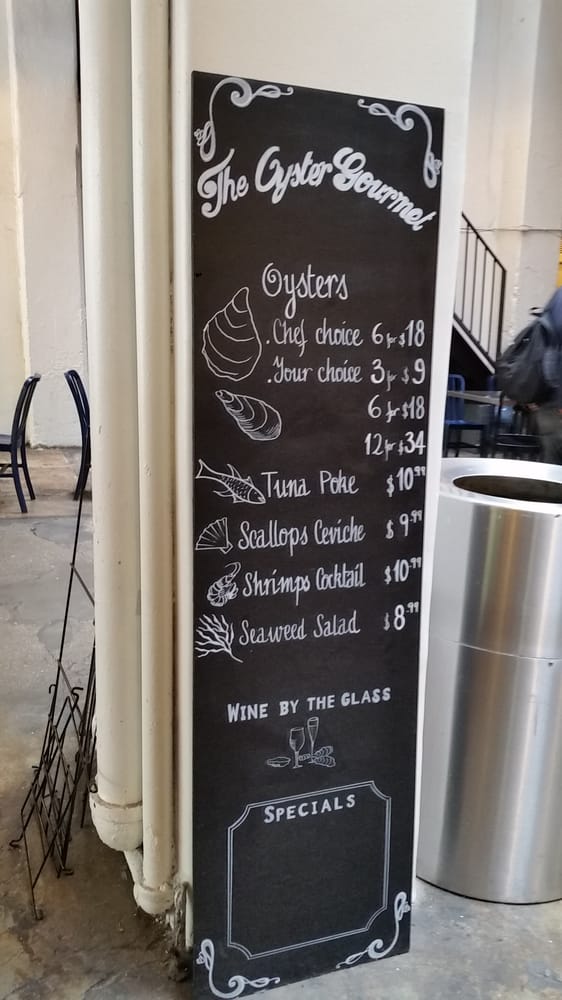 The Oyster Gourmet
Oysters
.Chef choice 6 for $18
.Your choice 3 for $9
6 for $18
12 for $34
Tuna Poke $10.99
Scallops Ceviche $9.99
Shrimps Cocktail $10.99
Seaweed Salad $8.99
WINE BY THE GLASS
SPECIALS